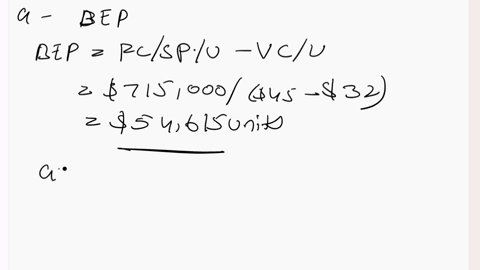 a - BEP
BEP = FC/SP/U - VC/U
= $715,000/($45 - $32)
= $54,615 units
a